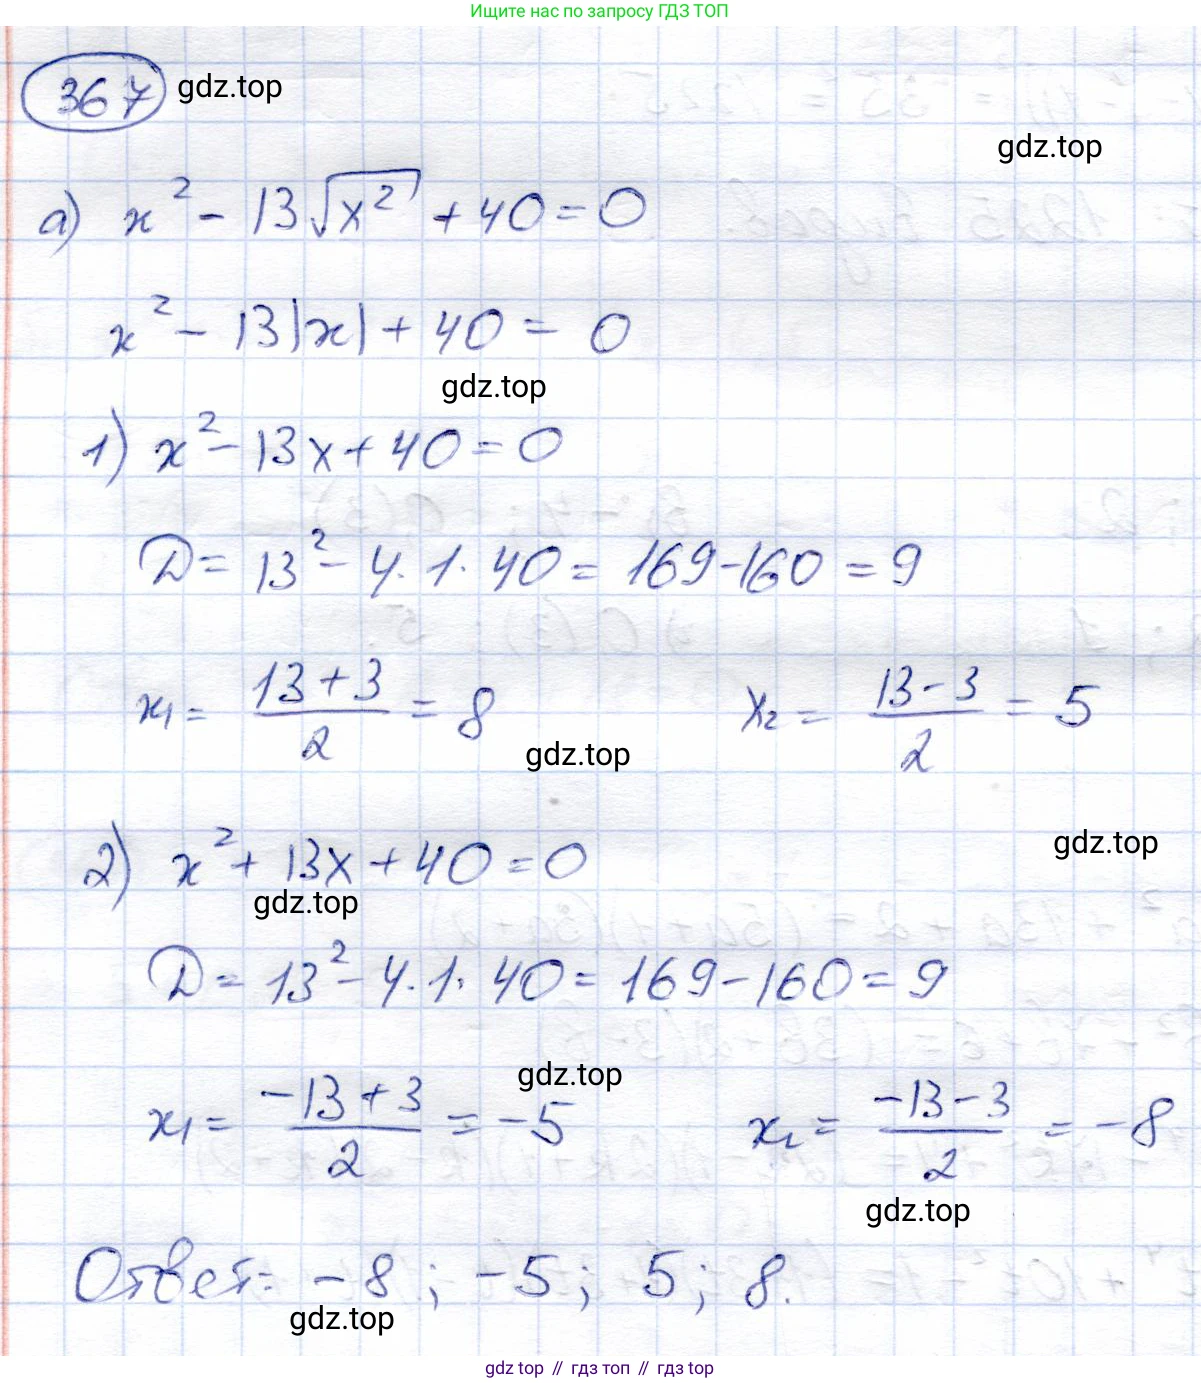 Ищите нас по запросу ГДЗ ТОП
367 gdz.top
gdz.top
а) x² - 13√x² + 40 = 0
x² - 13|x| + 40 = 0
gdz.top
1) x² - 13x + 40 = 0
D = 13² - 4·1·40 = 169 - 160 = 9
x₁ = (13 + 3)/2 = 8 x₂ = (13 - 3)/2 = 5
gdz.top
gdz.top
2) x² + 13x + 40 = 0
gdz.top
D = 13² - 4·1·40 = 169 - 160 = 9
gdz.top
x₁ = (-13 + 3)/2 = -5 x₂ = (-13 - 3)/2 = -8
gdz.top
Ответ: -8; -5; 5; 8.
gdz.top
gdz top // гдз топ // gdz top